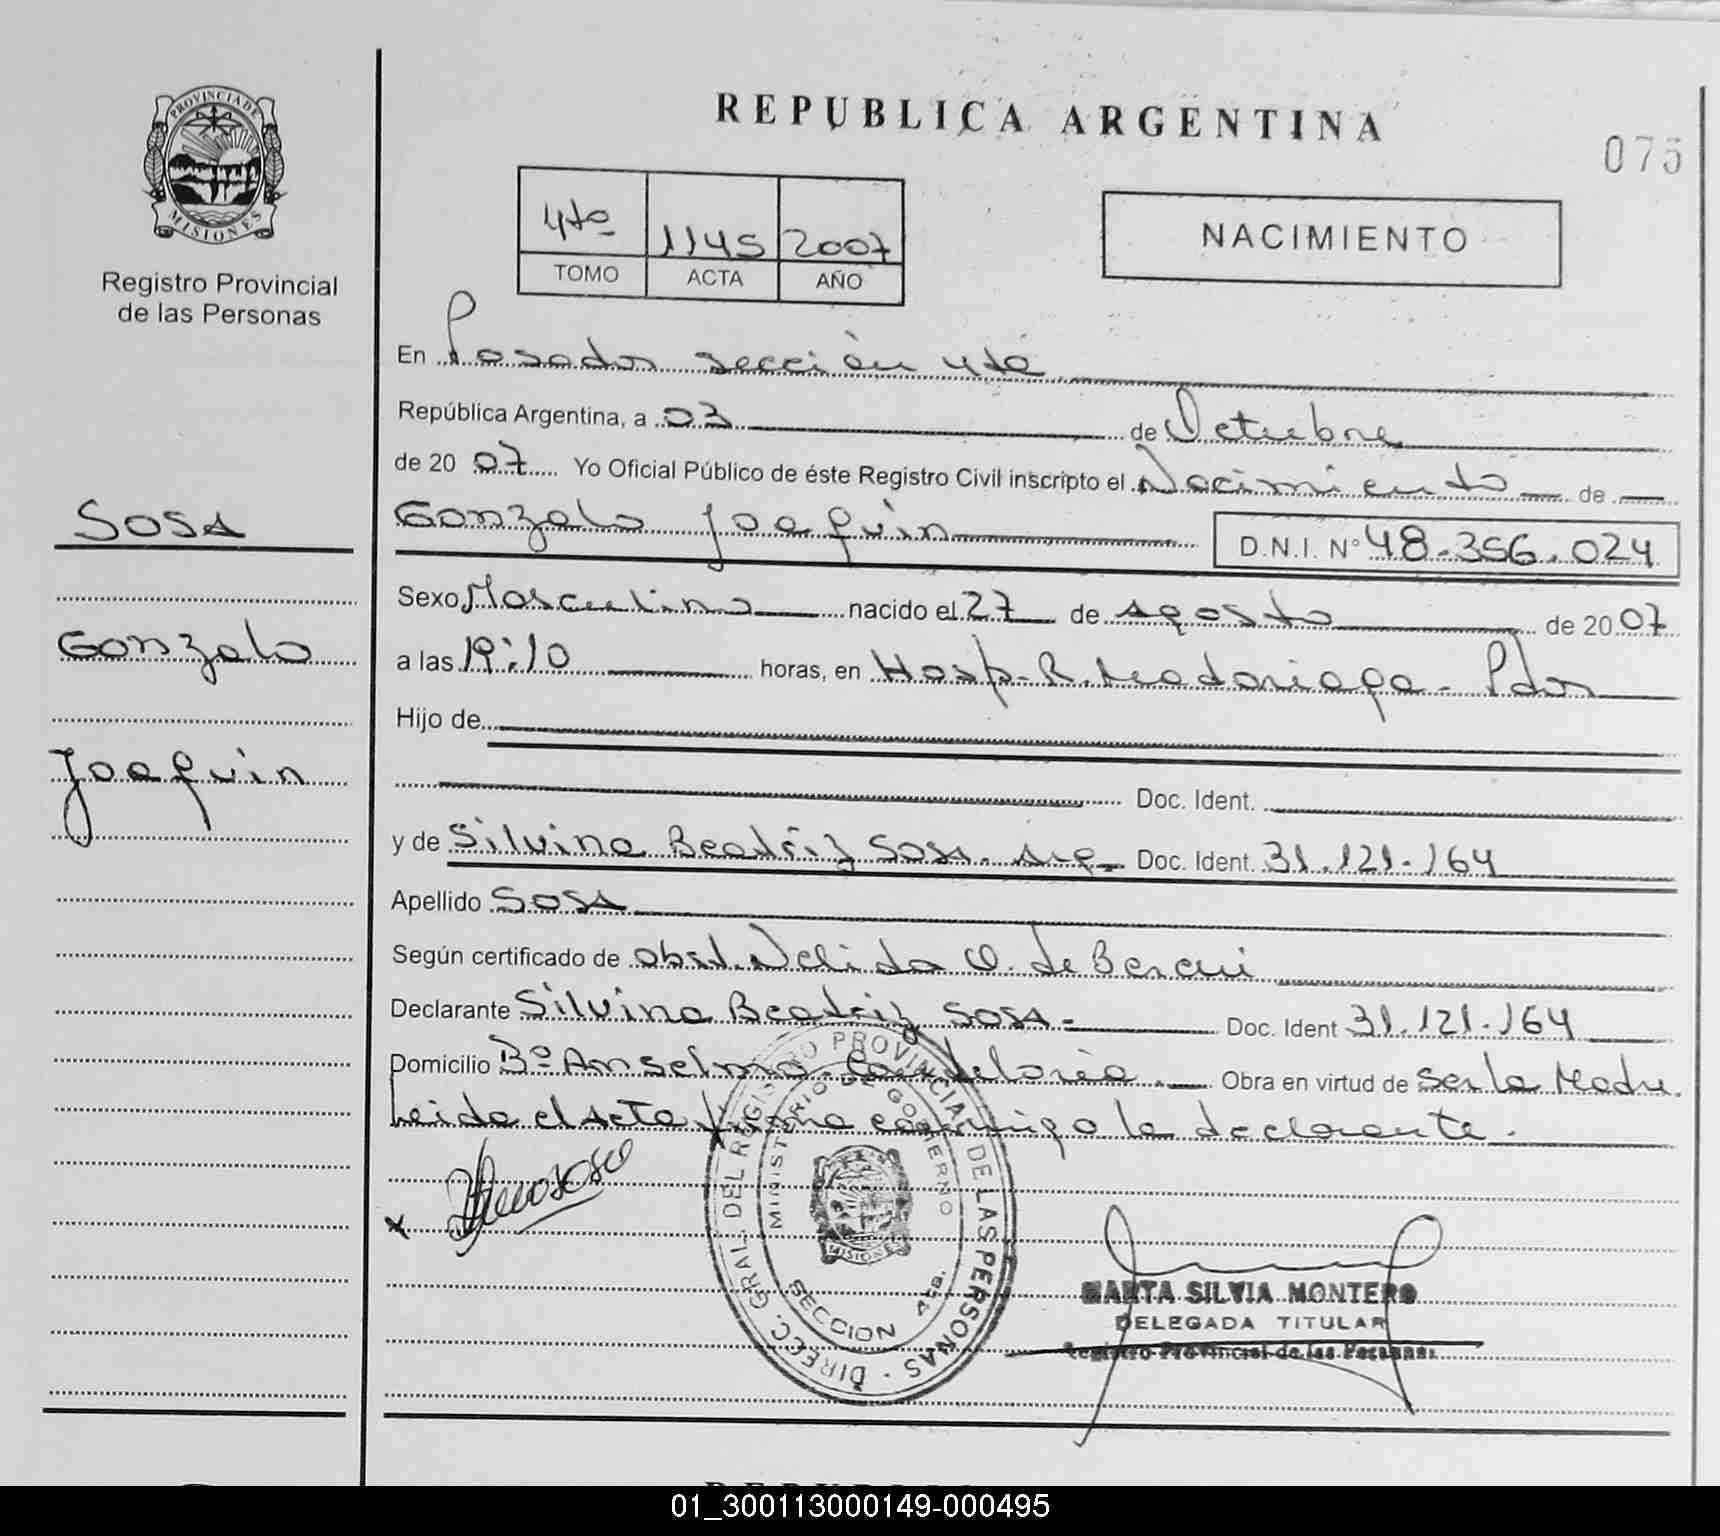 PROVINCIA DE
MISIONES
Registro Provincial
de las Personas
REPUBLICA ARGENTINA
075
4to 1145 2007
TOMO ACTA AÑO
NACIMIENTO
En Posadas sección 4ta
República Argentina, a 03 de Octubre
de 2007 Yo Oficial Público de éste Registro Civil inscripto el Nacimiento de
SOSA
Gonzalo Joaquin D.N.I. N° 48.356.024
Sexo Masculino nacido el 27 de Agosto de 2007
Gonzalo
a las 19:10 horas, en Hosp. R. Madariaga - Pdas
Hijo de
Joaquin
Doc. Ident.
y de Silvina Beatriz SOSA. Arg. Doc. Ident. 31.121.164
Apellido SOSA
Según certificado de obst. Nelida O. de
Declarante Silvina Beatriz SOSA - Doc. Ident 31.121.164
Domicilio B° Anselmo. Candelaria. Obra en virtud de ser la Madre.
Leida el Acta firma conmigo la declarante.
DIREC. GRAL. DEL REGISTRO PROVINCIAL DE LAS PERSONAS
MINISTERIO DE GOBIERNO
MISIONES
SECCION 4ta.
MARTA SILVIA MONTERO
DELEGADA TITULAR
Registro Provincial de las Personas
01_300113000149-000495